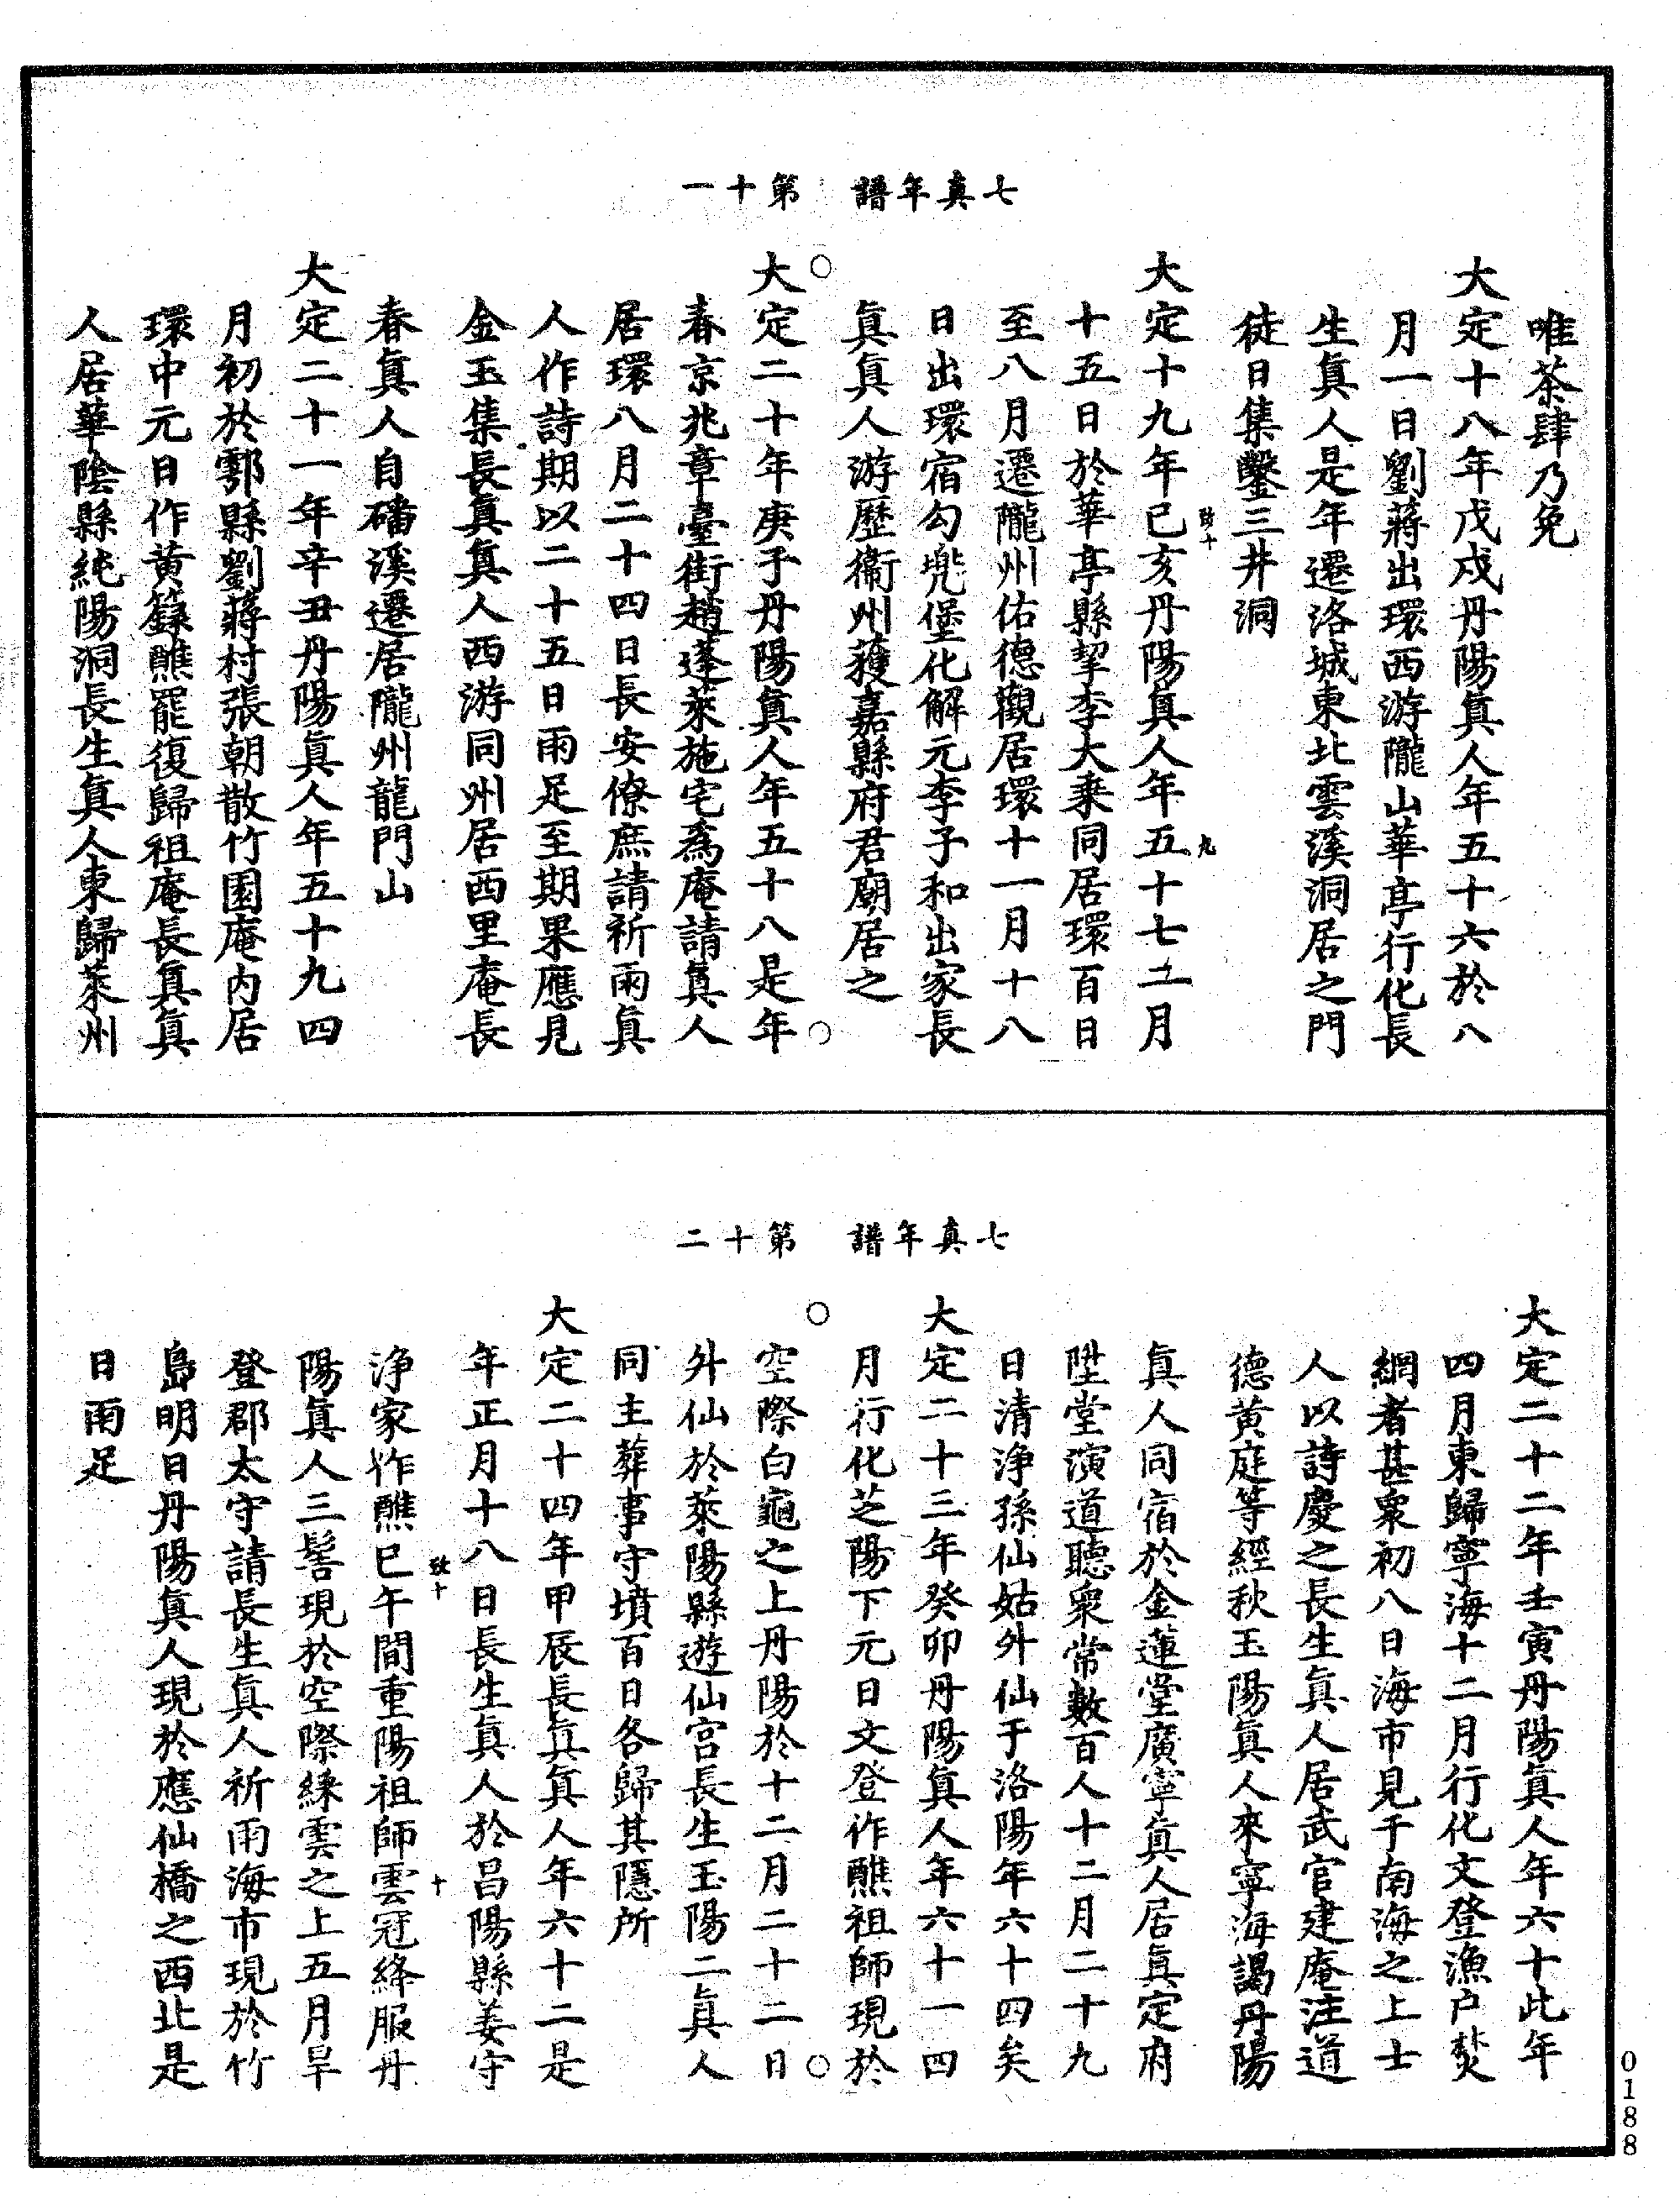 七真年譜　第十一
唯茶肆乃免
大定十八年戊戌丹陽真人年五十六於八
月一日劉蔣出環西游隴山華亭行化長
生真人是年遷洛城東北雲溪洞居之門
徒日集鑿三井洞
大定十九年己亥丹陽真人年五十七二月
致十
九
十五日於華亭縣挈李大乗同居環百日
至八月遷隴州佑德觀居環十一月十八
日出環宿勾兠堡化解元李子和出家長
真真人游歷衞州獲嘉縣府君廟居之
大定二十年庚子丹陽真人年五十八是年
春京兆章臺街趙蓬萊施宅為庵請真人
居環八月二十四日長安僚庶請祈雨真
人作詩期以二十五日雨足至期果應見
金玉集長真真人西游同州居西里庵長
春真人自磻溪遷居隴州龍門山
大定二十一年辛丑丹陽真人年五十九四
月初於鄠縣劉蔣村張朝散竹園庵内居
環中元日作黄籙醮罷復歸祖庵長真真
人居華陰縣純陽洞長生真人東歸萊州
七真年譜　第十二
大定二十二年壬寅丹陽真人年六十此年
四月東歸寧海十二月行化文登漁户焚
網者甚衆初八日海市見于南海之上士
人以詩慶之長生真人居武官建庵注道
德黄庭等經秋玉陽真人來寧海謁丹陽
真人同宿於金蓮堂廣寧真人居真定府
陞堂演道聽衆常數百人十二月二十九
日清浄孫仙姑外仙于洛陽年六十四矣
大定二十三年癸卯丹陽真人年六十一四
月行化芝陽下元日文登作醮祖師現於
空際白龜之上丹陽於十二月二十二日
外仙於萊陽縣遊仙宫長生玉陽二真人
同主葬事守墳百日各歸其隱所
大定二十四年甲辰長真真人年六十二是
年正月十八日長生真人於昌陽縣姜守
浄家作醮巳午間重陽祖師雲冠絳服丹
致十
十
陽真人三髻現於空際綵雲之上五月旱
登郡太守請長生真人祈雨海市現於竹
島明日丹陽真人現於應仙橋之西北是
日雨足
0188